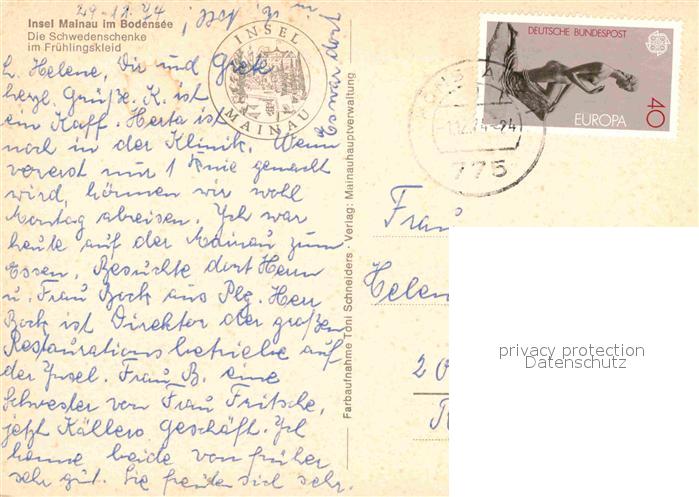 29.11.74
Insel Mainau im Bodensee
Die Schwedenschenke
im Frühlingskleid
L. Helene, Dir und Grete
herzl. Grüße. K. ist
ein Kaff. Herta ist
noch in der Klinik. Wenn
vorerst nur 1 Knie gemacht
wird, können wir wohl
Montag abreisen. Ich war
heute auf der Mainau zum
Essen. Besuchte dort Herrn
u. Frau Bock aus Plg. Herr
Bock ist Direktor der großen
Restaurationsbetriebe auf
der Insel. Frau B. eine
Schwester von Frau Fritsche,
jetzt Källers Geschäft. Ich
kenne beide von früher
sehr gut. Sie freuten sich sehr.
Es war dort
INSEL
MAINAU
Farbaufnahme Toni Schneiders - Verlag: Mainauhauptverwaltung
DEUTSCHE BUNDESPOST
EUROPA
40
775
Frau
Helen
20
privacy protection
Datenschutz